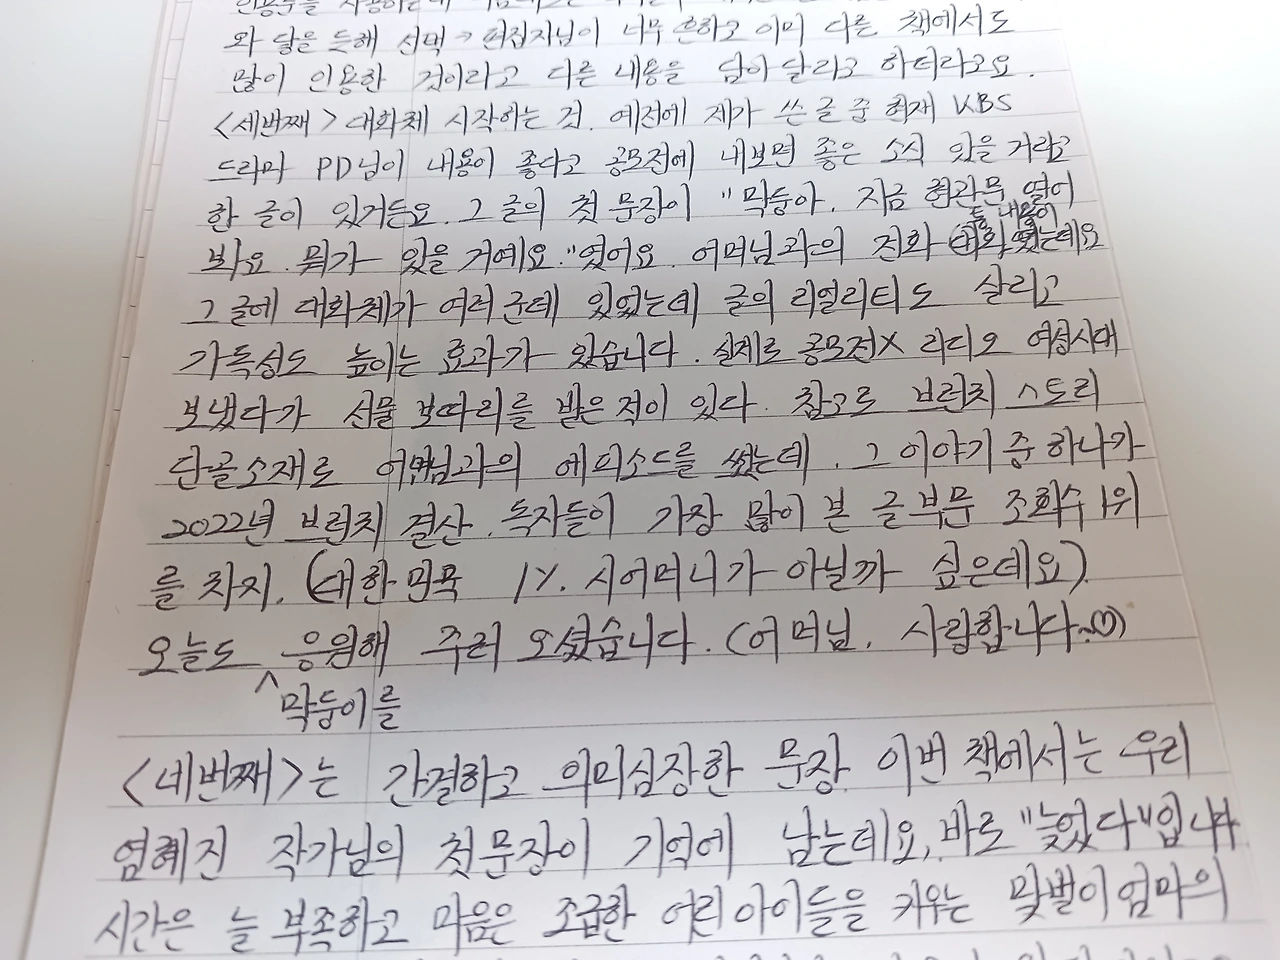 와 닿을 듯해 선택 → 편집자님이 너무 흔하고 이미 다른 책에서도
많이 인용한 것이라고 다른 내용을 담아 달라고 하더라고요.
<세번째> 대화체 시작하는 것. 예전에 제가 쓴 글 중 현재 KBS
드라마 PD님이 내용이 좋다고 공모전에 내보면 좋은 소식 있을 거라고
한 글이 있거든요. 그 글의 첫 문장이 "막둥아. 지금 현관문 열어
봐요. 뭐가 있을 거예요."였어요. 어머님과의 전화 내용이
그 글에 대화체가 여러군데 있었는데 글의 리얼리티도 살리고
가독성도 높이는 효과가 있습니다. 실제로 공모전X 라디오 여성시대
보냈다가 선물 보따리를 받은 적이 있다. 참고로 브런치 스토리
단골소재로 어머님과의 에피소드를 썼는데. 그 이야기 중 하나가
2022년 브런치 결산. 독자들이 가장 많이 본 글 부문 조회수 1위
를 차지. (대한민국 1%. 시어머니가 아닐까 싶은데요).
오늘도 ^ 응원해 주러 오셨습니다. (어머님. 사랑합니다~♡)
막둥이를
<네번째>는 간결하고 의미심장한 문장. 이번 책에서는 우리
염혜진 작가님의 첫문장이 기억에 남는데요, 바로 "늦었다"입니다
시간은 늘 부족하고 마음은 조급한 어린아이들을 키우는 맞벌이 엄마의